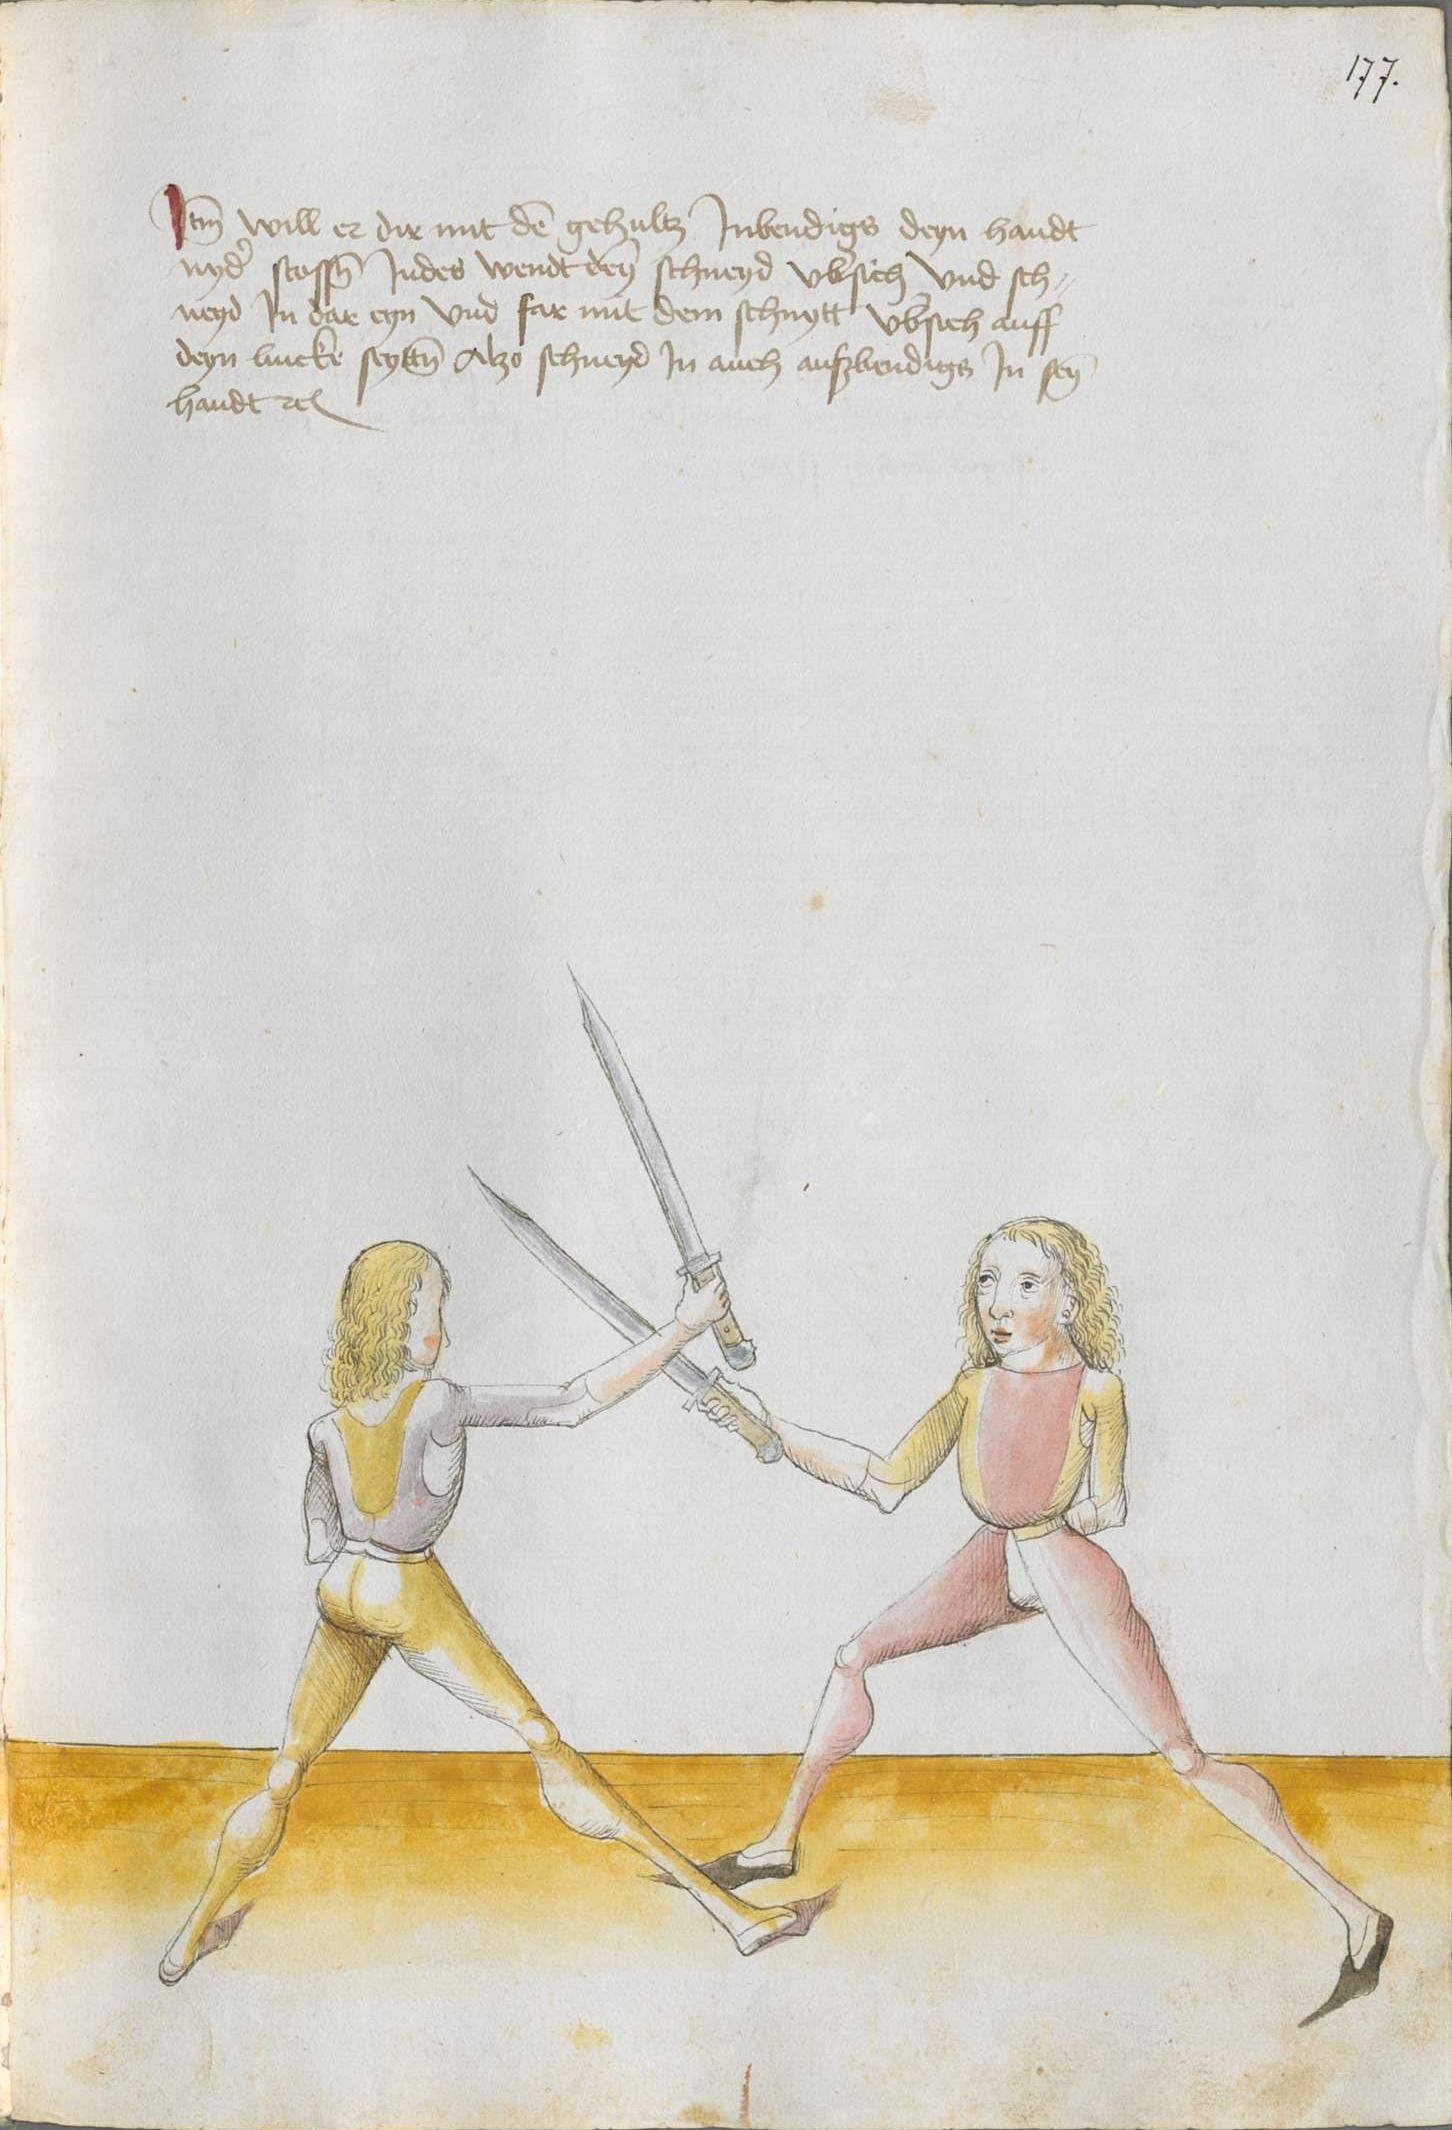 177.
Itm̄ will er dir mit dē gehultz Inbendigs deyn handt
nyd' stossñ Indes wendt deȳ schneyd vb'sich vnd sch〃
neyd In dar eyn vnd far mit dem schnytt vb'sich auff
deyn lincke seyttñ Alzo schneyd In auch auszbendigs In seȳ
handt